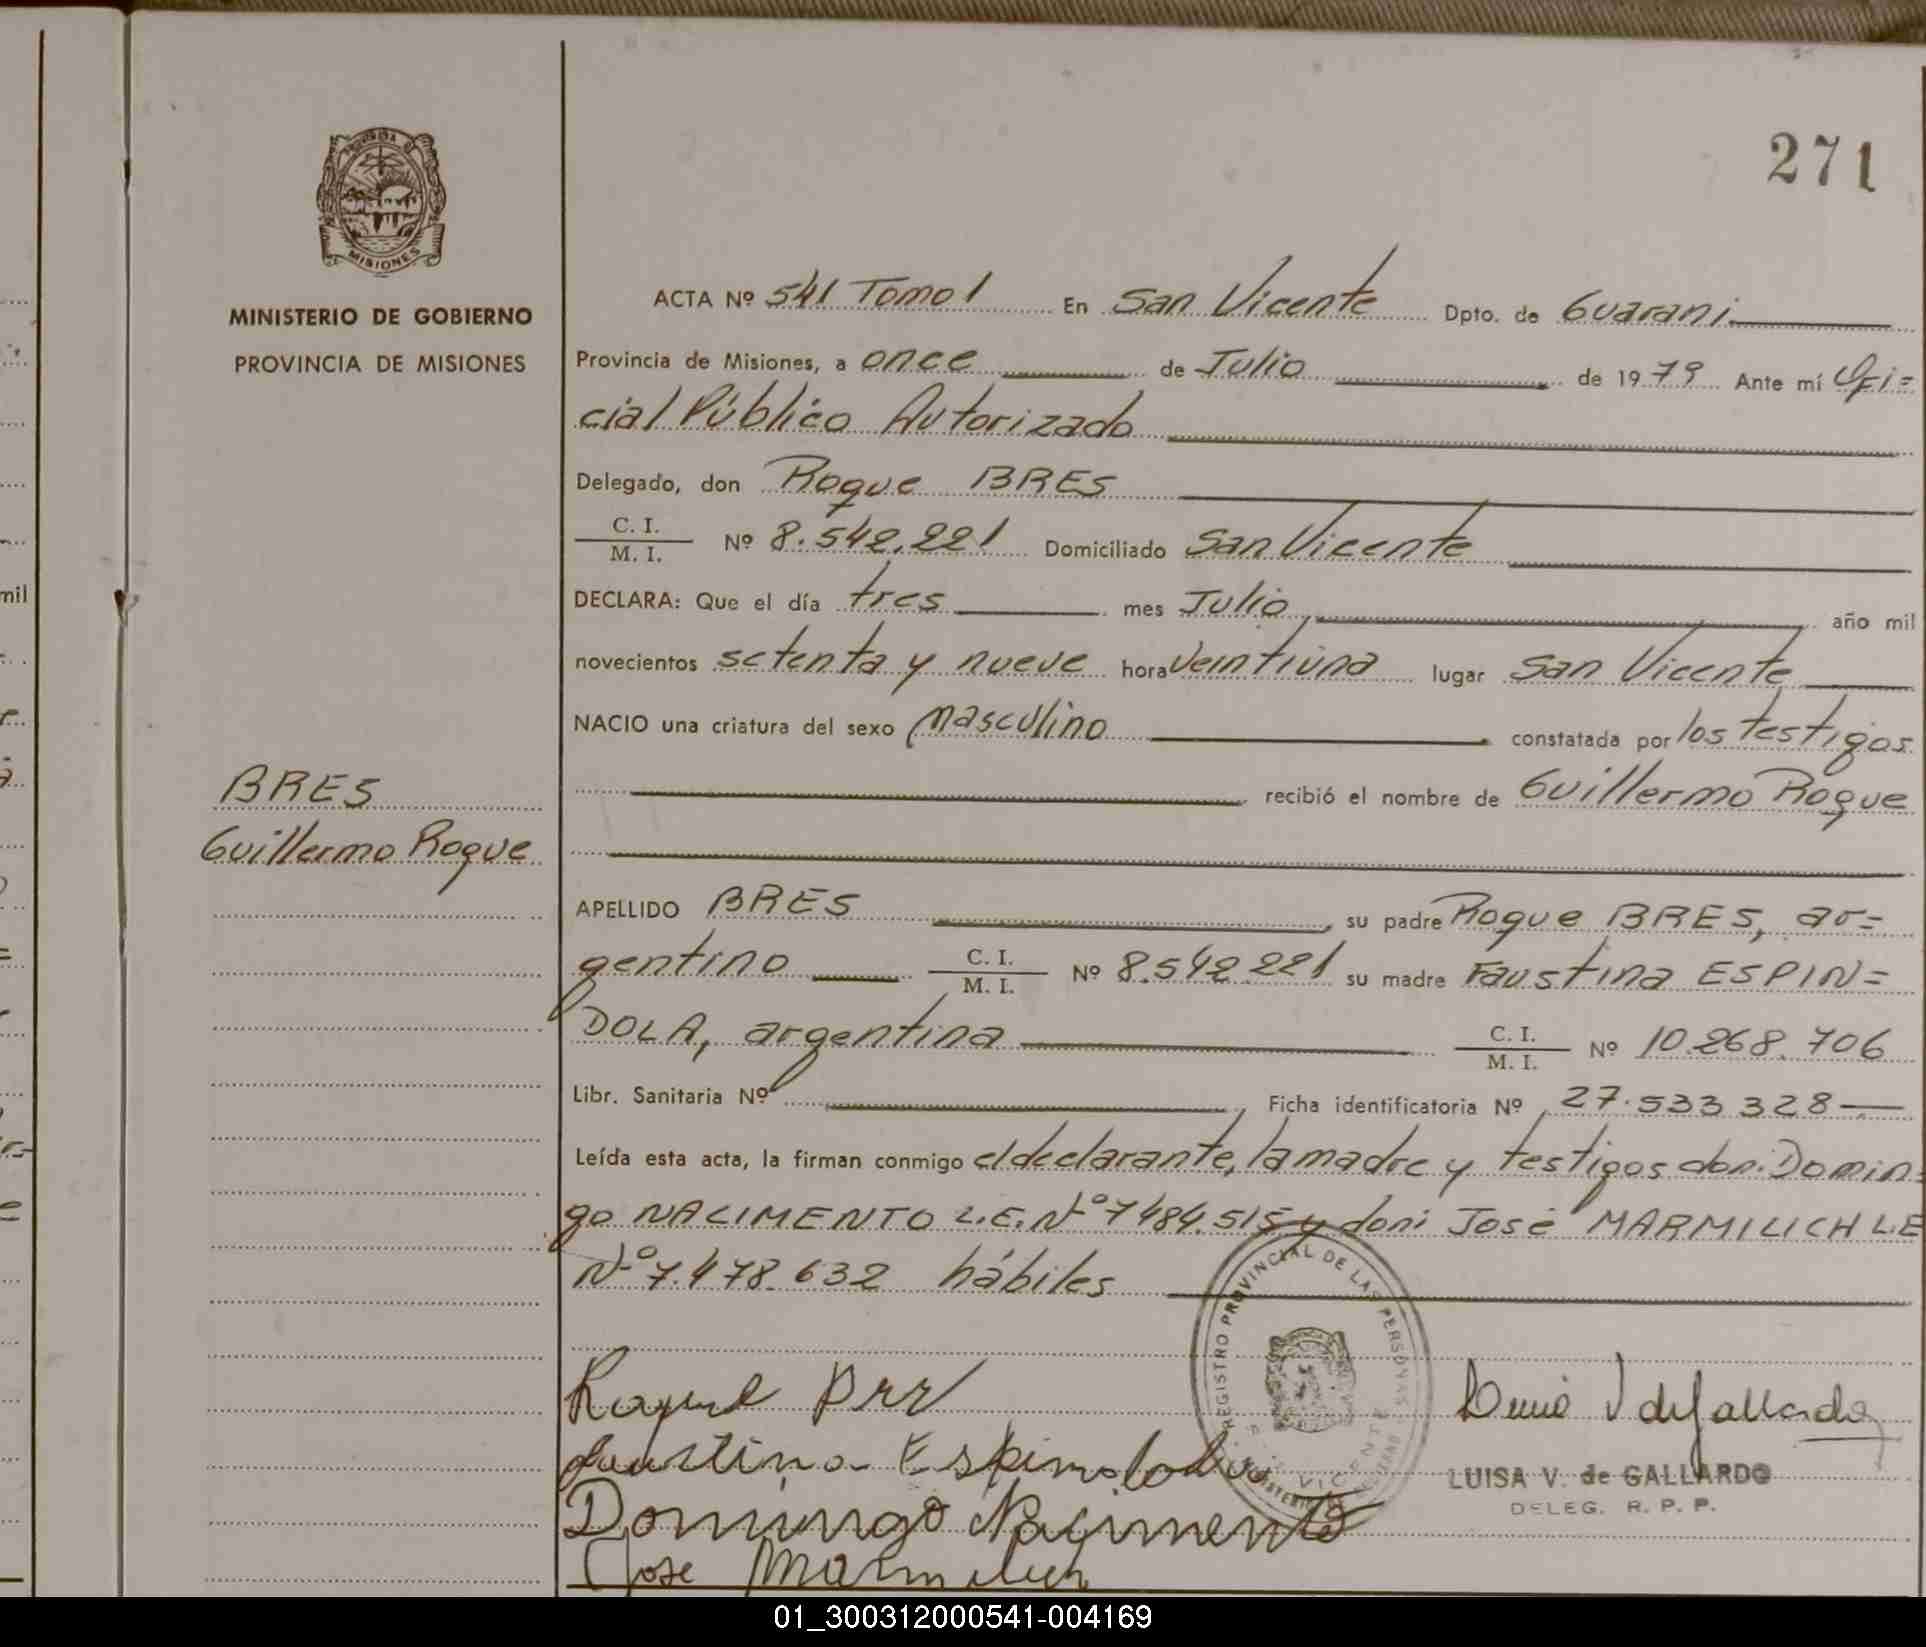 271
PROVINCIA DE
MISIONES
MINISTERIO DE GOBIERNO
PROVINCIA DE MISIONES
BRES
Guillermo Roque
ACTA Nº 541 Tomo I En San Vicente Dpto. de Guarani
Provincia de Misiones, a once de Julio de 1979 Ante mí Ofi=
cial Público Autorizado
Delegado, don Roque BRES
C. I.
M. I. Nº 8.542.221 Domiciliado San Vicente
DECLARA: Que el día tres mes Julio año mil
novecientos setenta y nueve hora veintiuna lugar San Vicente
NACIO una criatura del sexo masculino constatada por los testigos
recibió el nombre de Guillermo Roque
APELLIDO BRES, su padre Roque BRES, ar=
gentino C. I.
M. I. Nº 8.542.221 su madre Faustina ESPIN=
DOLA, argentina C. I.
M. I. Nº 10.268.706
Libr. Sanitaria Nº , Ficha identificatoria Nº 27.533328
Leída esta acta, la firman conmigo el declarante, la madre y testigos don: Domin=
go NACIMENTO L.E. Nº 7484.515 y don: José MARMILICH L.E
Nº 7.478.632 hábiles
REGISTRO PROVINCIAL DE LAS PERSONAS
VICENTE
Faustina Espindola
Domingo Nacimento
Jose Marmilich
V de Gallardo
LUISA V. de GALLARDO
DELEG. R. P. P.
mil
01_300312000541-004169